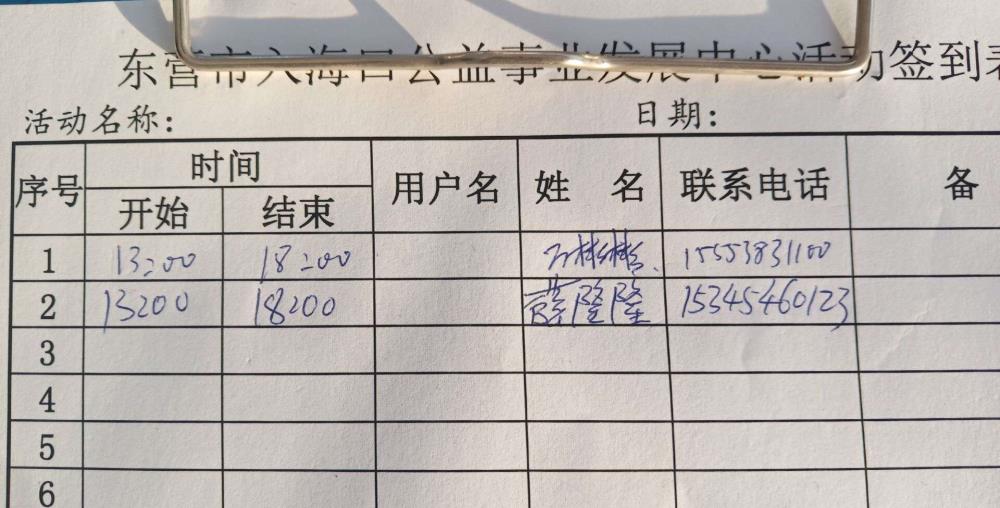 东营市入海口公益事业发展中心活动签到表
活动名称： 日期：
序号 时间 用户名 姓 名 联系电话 备
开始 结束
1 13:00 18:00 彬彬 15553831100
2 13:00 18:00 薛隆隆 15345460123
3
4
5
6